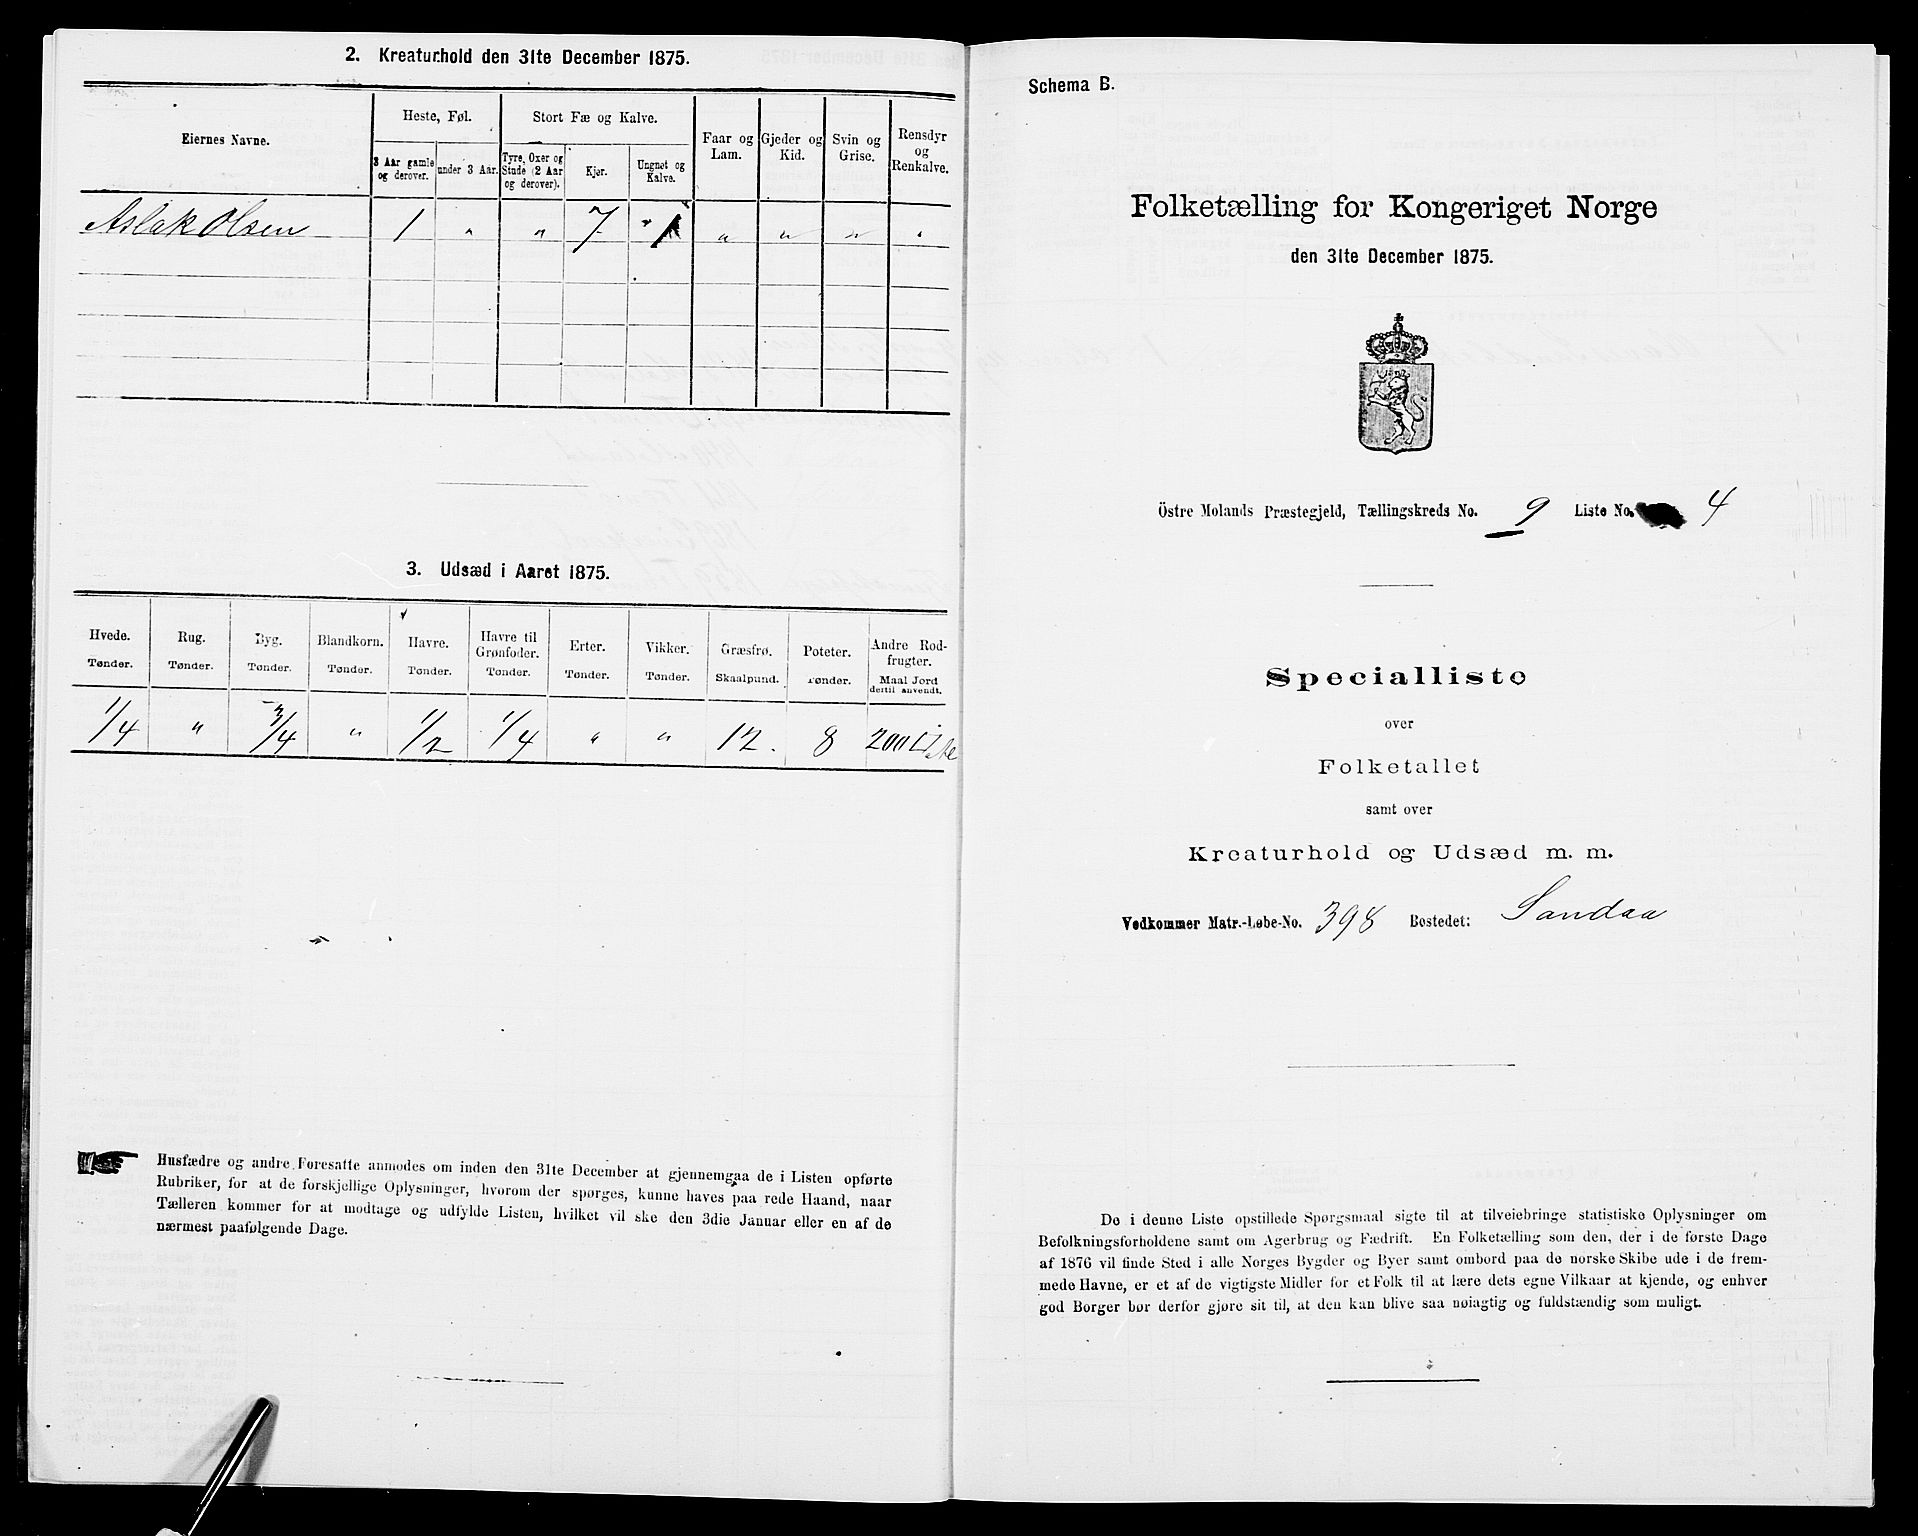 2. Kreaturhold den 31te December 1875.
Eiernes Navne.
Heste, Føl.
3 Aar gamle og derover.
under 3 Aar.
Stort Fæ og Kalve.
Tyre, Oxer og Stude (2 Aar og derover).
Kjør.
Ungnøt og Kalve.
Faar og Lam.
Gjeder og Kid.
Svin og Grise.
Rensdyr og Renkalve.
Aslak Olsen 1 " " 7 " 1 " " " "
3. Udsæd i Aaret 1875.
Hvede. Rug. Byg. Blandkorn. Havre. Havre til Grønfoder. Erter. Vikker. Græsfrø. Poteter. Andre Rodfrugter.
Tønder. Tønder. Tønder. Tønder. Tønder. Tønder. Tønder. Tønder. Skaalpund. Tønder. Maal Jord dertil anvendt.
1/4 " 3/4 " 1/2 1/4 " " 12. 8 200
Husfædre og andre Foresatte anmodes om inden den 31te December at gjennemgaa de i Listen opførte
Rubriker, for at de forskjellige Oplysninger, hvorom der spørges, kunne haves paa rede Haand, naar
Tælleren kommer for at modtage og udfylde Listen, hvilket vil ske den 3die Januar eller en af de
nærmest paafølgende Dage.
Schema B.
Folketælling for Kongeriget Norge
den 31te December 1875.
Östre Molands Præstegjeld, Tællingskreds No. 9 Liste No. 4
Specialliste
over
Folketallet
samt over
Kreaturhold og Udsæd m. m.
Vedkommer Matr.-Løbe-No. 398 Bostedet: Sandaa
De i denne Liste opstillede Spørgsmaal sigte til at tilveiebringe statistiske Oplysninger om
Befolkningsforholdene samt om Agerbrug og Fædrift. En Folketælling som den, der i de første Dage
af 1876 vil finde Sted i alle Norges Bygder og Byer samt ombord paa de norske Skibe ude i de frem-
mede Havne, er et af de vigtigste Midler for et Folk til at lære dets egne Vilkaar at kjende, og enhver
god Borger bør derfor gjøre sit til, at den kan blive saa nøiagtig og fuldstændig som muligt.